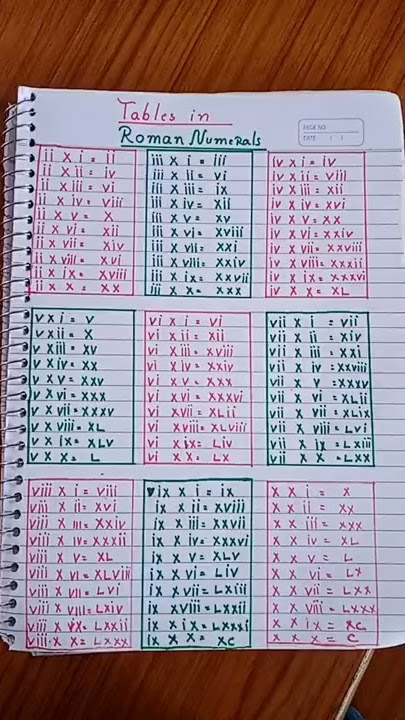 Tables in
Roman Numerals
PAGE NO.
DATE / /
ii X i = ii
ii X ii = iv
ii X iii = vi
ii X iv = viii
ii X v = X
ii X vi = Xii
ii X vii = Xiv
ii X viii = Xvi
ii X ix = Xviii
ii X X = XX
iii X i = iii
iii X ii = vi
iii X iii = ix
iii X iv = Xii
iii X v = Xv
iii X vi = Xviii
iii X vii = XXi
iii X viii = XXiv
iii X ix = XXvii
iii X X = XXX
iv X i = iv
iv X ii = viii
iv X iii = Xii
iv X iv = Xvi
iv X v = XX
iv X vi = XXiv
iv X vii = XXviii
iv X viii = XXXii
iv X ix = XXXvi
iv X X = XL
v X i = v
v X ii = X
v X iii = XV
v X iv = XX
v X v = XXv
v X vi = XXX
v X vii = XXXv
v X viii = XL
v X ix = XLV
v X X = L
vi X i = vi
vi X ii = Xii
vi X iii = XViii
vi X iv = XXiv
vi X v = XXX
vi X vi = XXXvi
vi X vii = XLii
vi X viii = XLviii
vi X ix = Liv
vi X X = LX
vii X i = vii
vii X ii = Xiv
vii X iii = XXi
vii X iv = XXviii
vii X v = XXXv
vii X vi = XLii
vii X vii = XLix
vii X viii = LVi
vii X ix = LXiii
vii X X = LXX
viii X i = viii
viii X ii = Xvi
viii X iii = XXiv
viii X iv = XXXii
viii X v = XL
viii X vi = XLviii
viii X vii = LVi
viii X viii = LXiv
viii X ix = LXXii
viii X X = LXXX
ix X i = ix
ix X ii = Xviii
ix X iii = XXvii
ix X iv = XXXvi
ix X v = XLV
ix X vi = Liv
ix X vii = LXiii
ix X viii = LXXii
ix X ix = LXXXi
ix X X = XC
X X i = X
X X ii = XX
X X iii = XXX
X X iv = XL
X X v = L
X X vi = LX
X X vii = LXX
X X viii = LXXX
X X ix = XC
X X X = C